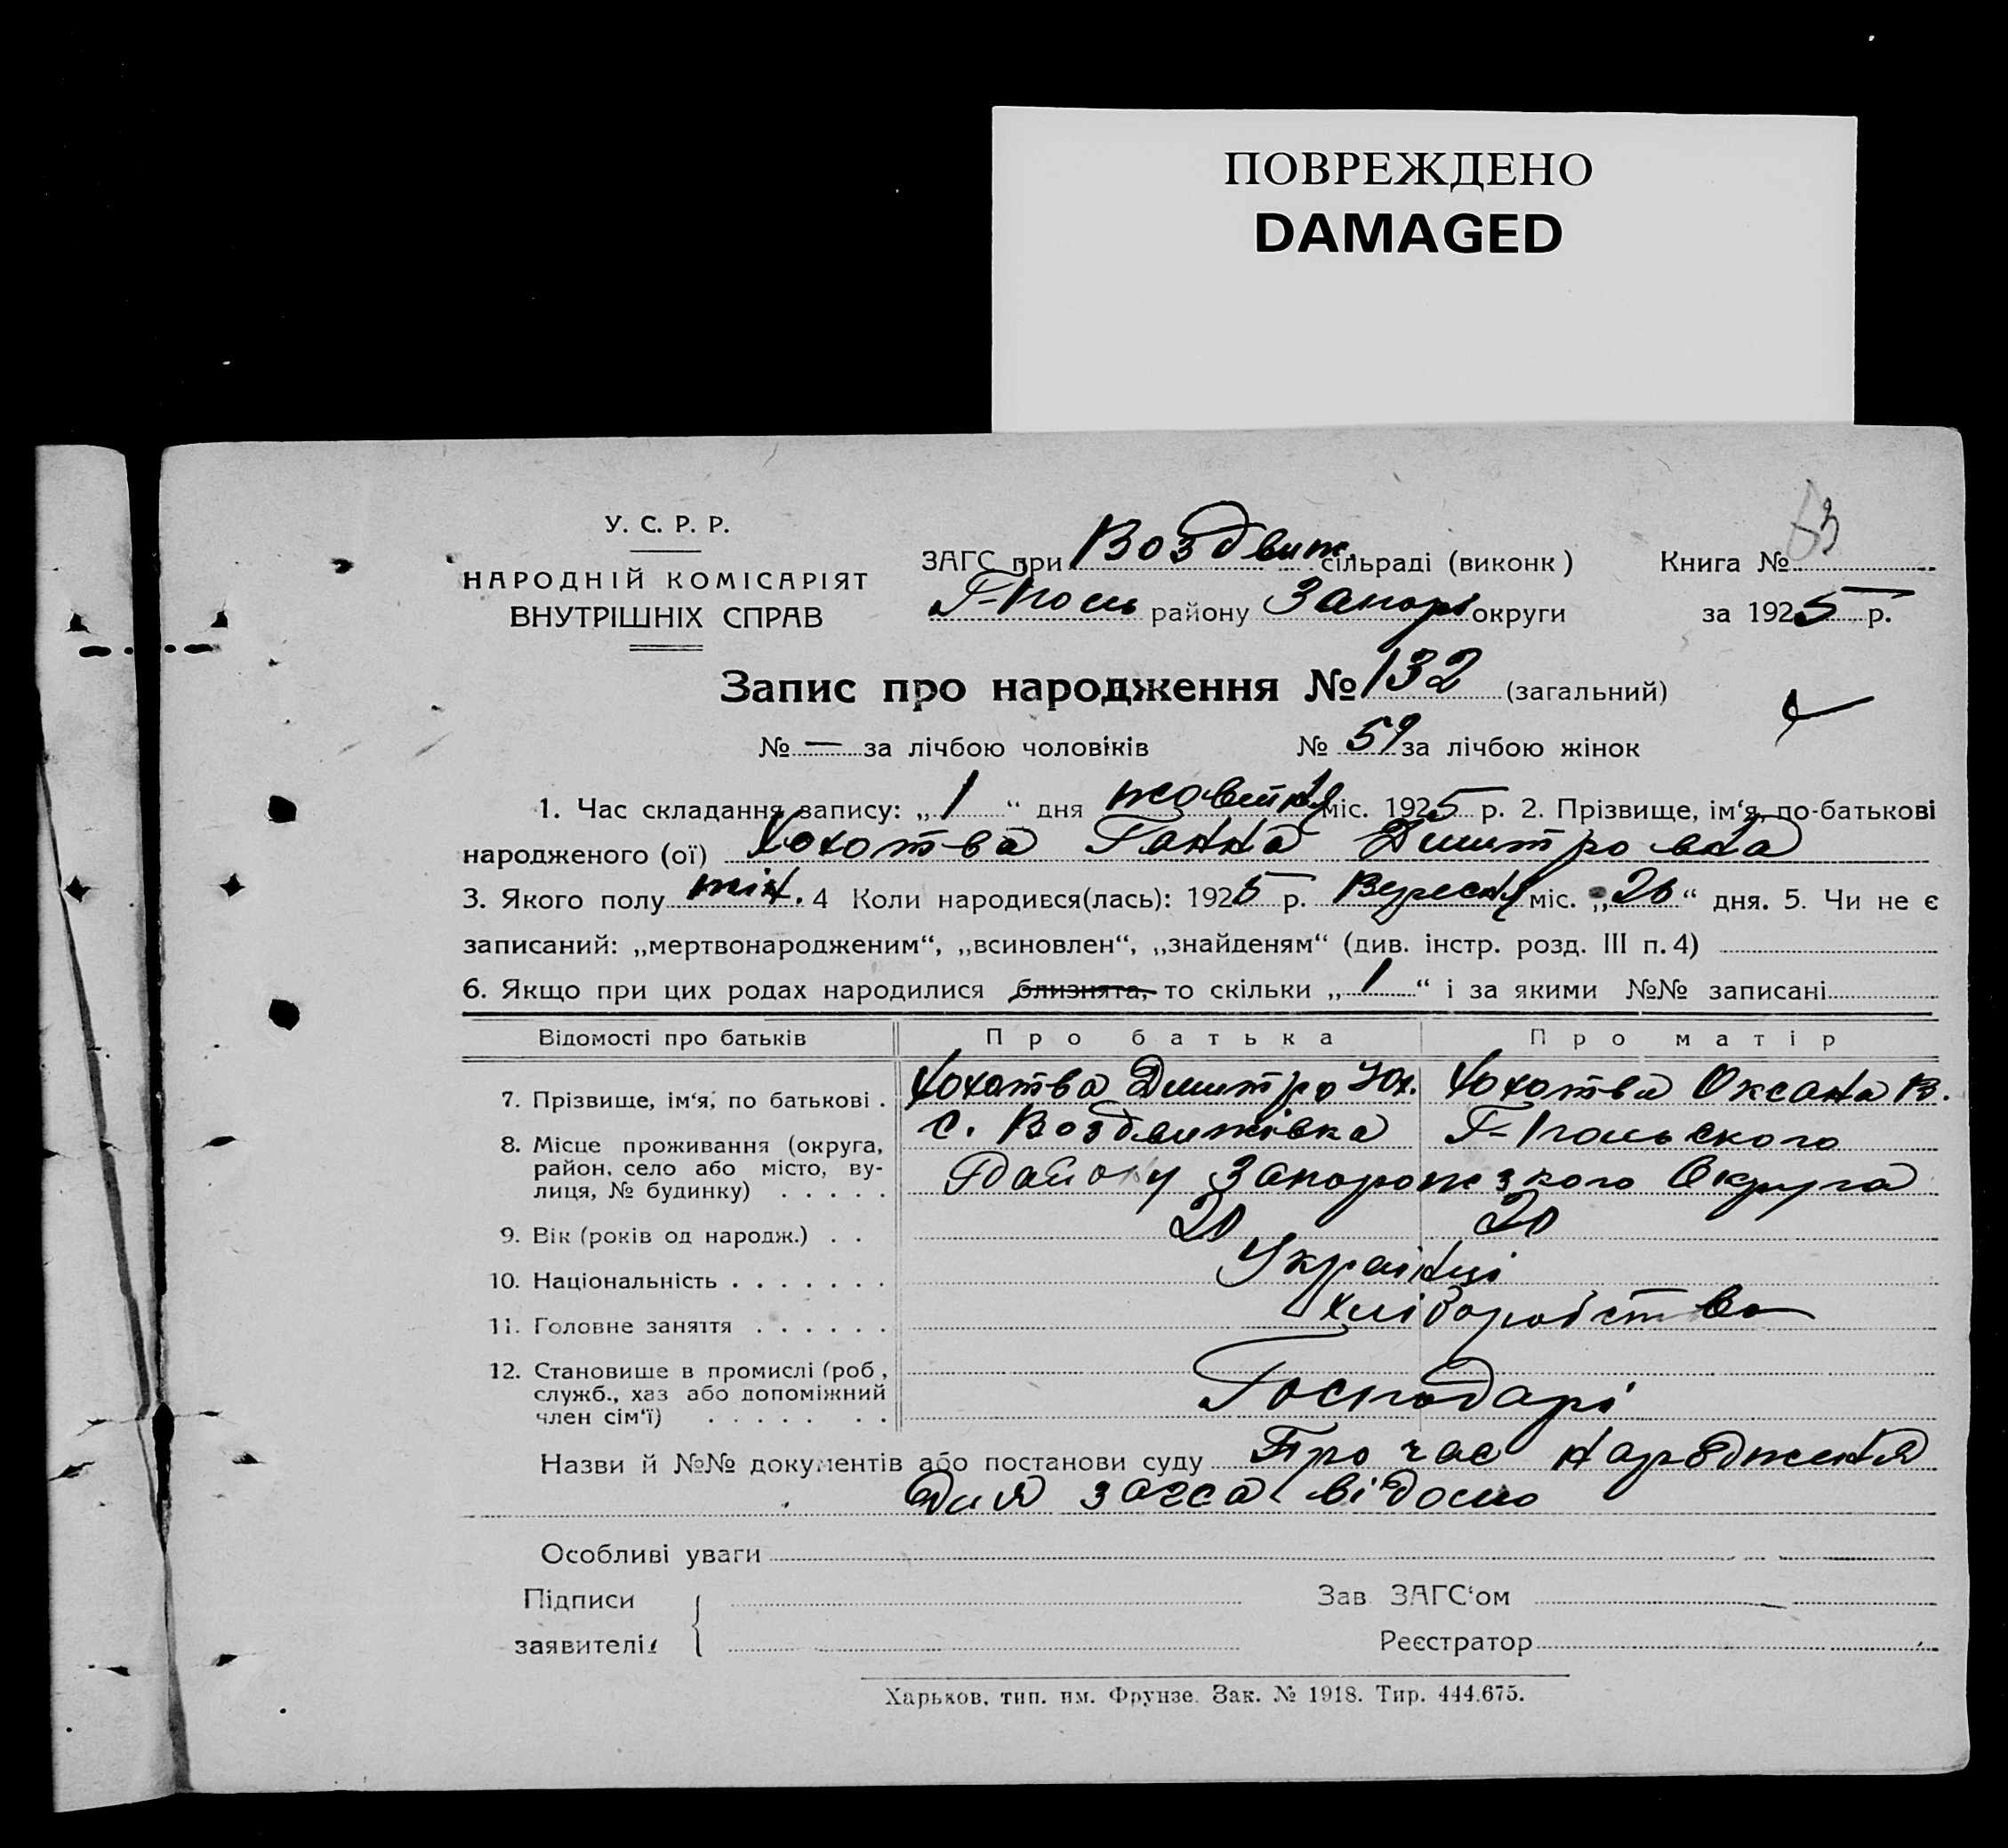 ПОВРЕЖДЕНО
DAMAGED
У. С. Р. Р.
НАРОДНІЙ КОМІСАРІЯТ
ВНУТРІШНІХ СПРАВ
ЗАГС при Воздвиж. сільраді (виконк)
Г-Поль району Запор округи
Книга №
за 1925 р.
Запис про народження № 132 (загальний)
№ — за лічбою чоловіків № 59 за лічбою жінок
1. Час складання запису: „1“ дня жовтня міс. 1925 р. 2. Прізвище, ім‘я, по-батькові
народженого (ої) Хохотва Ганна Дмитровна
3. Якого полу жін. 4 Коли народився(лась): 1925 р. Вересня міс. „26“ дня. 5. Чи не є
записаний: „мертвонародженим“, „всиновлен“, „знайденям“ (див. інстр. розд. III п. 4)
6. Якщо при цих родах народилися близнята, то скільки „1“ і за якими №№ записані
Відомості про батьків Про батька Про матір
7. Прізвище, ім‘я, по батькові . Хохотва Дмитро Хохотва Оксана В.
8. Місце проживання (округа, с. Воздвижівка Г-Польського
район, село або місто, ву- Району Запорожзкого Округа
лиця, № будинку) . . . . .
9. Вік (років од народж.) . . 20 20
10. Національність . . . . . . . Українці
11. Головне заняття . . . . . . хліборобство
12. Становище в промислі (роб,
служб., хаз або допоміжний Господарі
член сім‘ї) . . . . . . .
Назви й №№ документів або постанови суду Про час народження
для загса відомо
Особливі уваги
Підписи Зав ЗАГС‘ом
заявителів Реєстратор
Харьков, тип. им. Фрунзе. Зак. № 1918. Тир. 444.675.